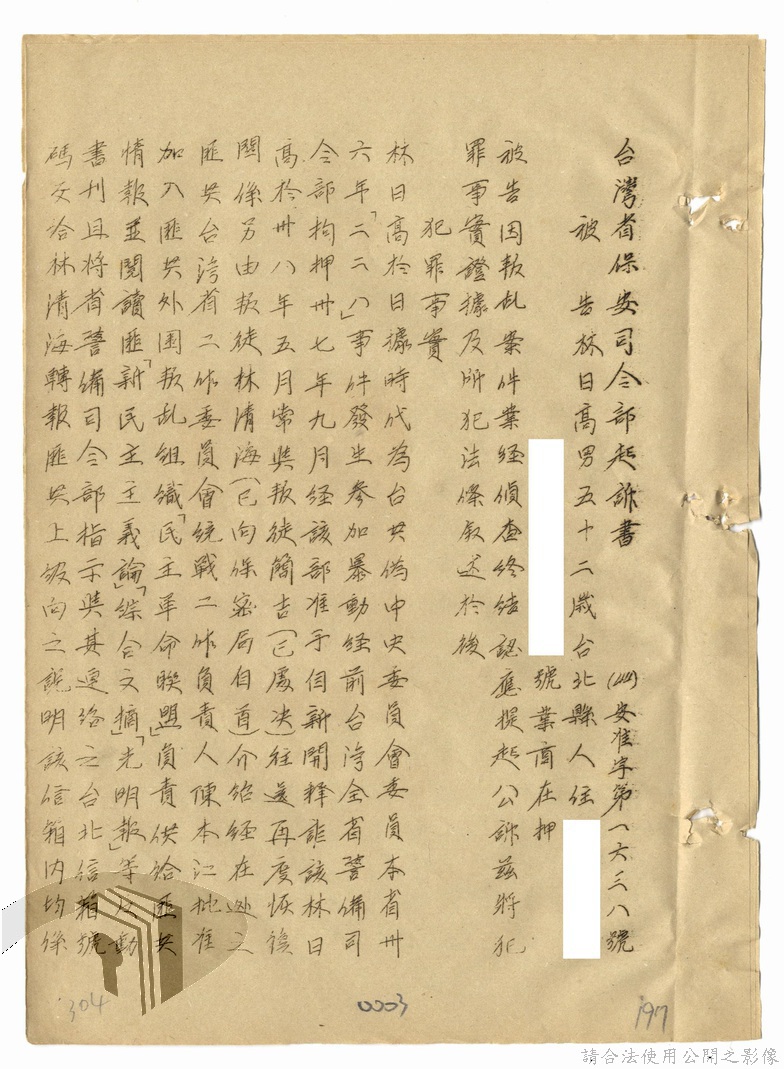 台灣省保安司令部起訴書
(四四)安准字第一六三八號
被告林日高男五十二歲台北縣人住
號業商在押
被告因叛乱案件業經偵查終結認應提起公訴茲將犯
罪事實證據及所犯法條敘述於後
犯罪事實
林日高於日據時代為台共偽中央委員會委員本省卅
六年「二二八」事件發生參加暴動經前台灣全省警備司
令部拘押卅七年九月經該部准予自新開釋詎該林日
高於卅八年五月常與叛徒簡吉(已處决)往還再度恢復
關係另由叛徒林清海(已向保密局自首)介紹經在逃之
匪共台灣省工作委員會統戰工作負責人陳本江批准
加入匪共外围叛乱組織「民主革命聯盟」負責供給匪共
情報並閱讀匪「新民主主義論」「綜合文摘」「光明報」等反動
書刊且將省警備司令部指示與其連絡之台北信箱號
碼交洽林清海轉報匪共上級向之說明該信箱內均係
304
0003
197
請合法使用公開之影像